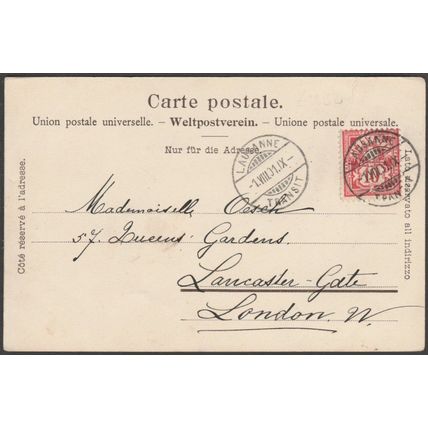 Carte postale.
Union postale universelle. – Weltpostverein. – Unione postale universale.
Nur für die Adresse.
Côté réservé à l'adresse.
Lato riservato all indirizzo
LAUSANNE
–1.VIII.01.IX–
TRANSIT
LAUSANNE
Mademoiselle Oesch
57. Queens' Gardens.
Lancaster-Gate
London. W.